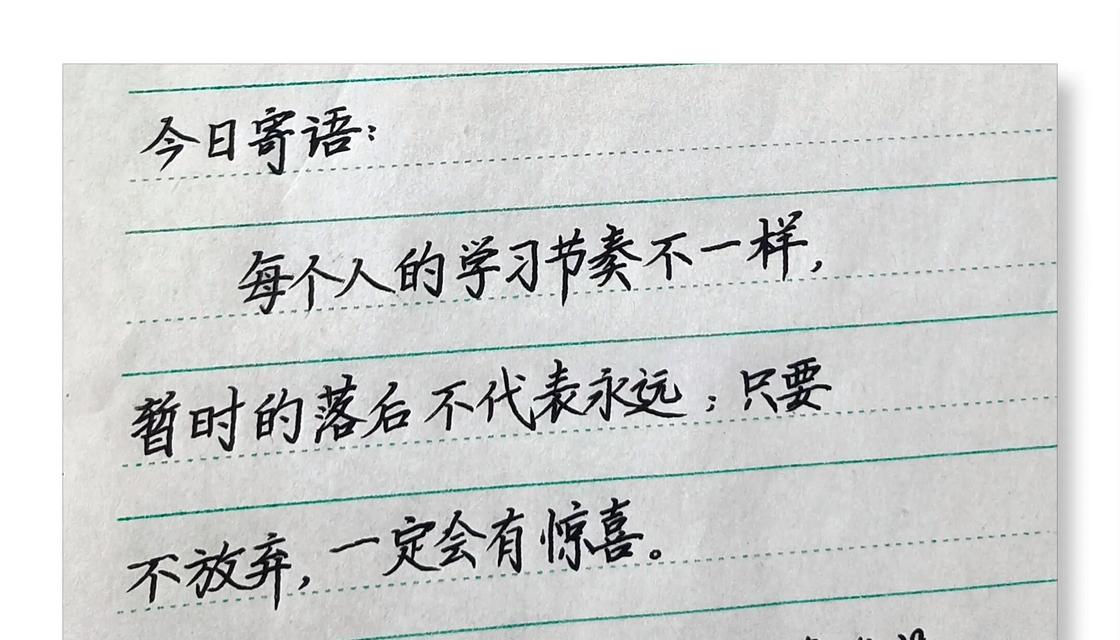 今日寄语：
每个人的学习节奏不一样，
暂时的落后不代表永远；只要
不放弃，一定会有惊喜。